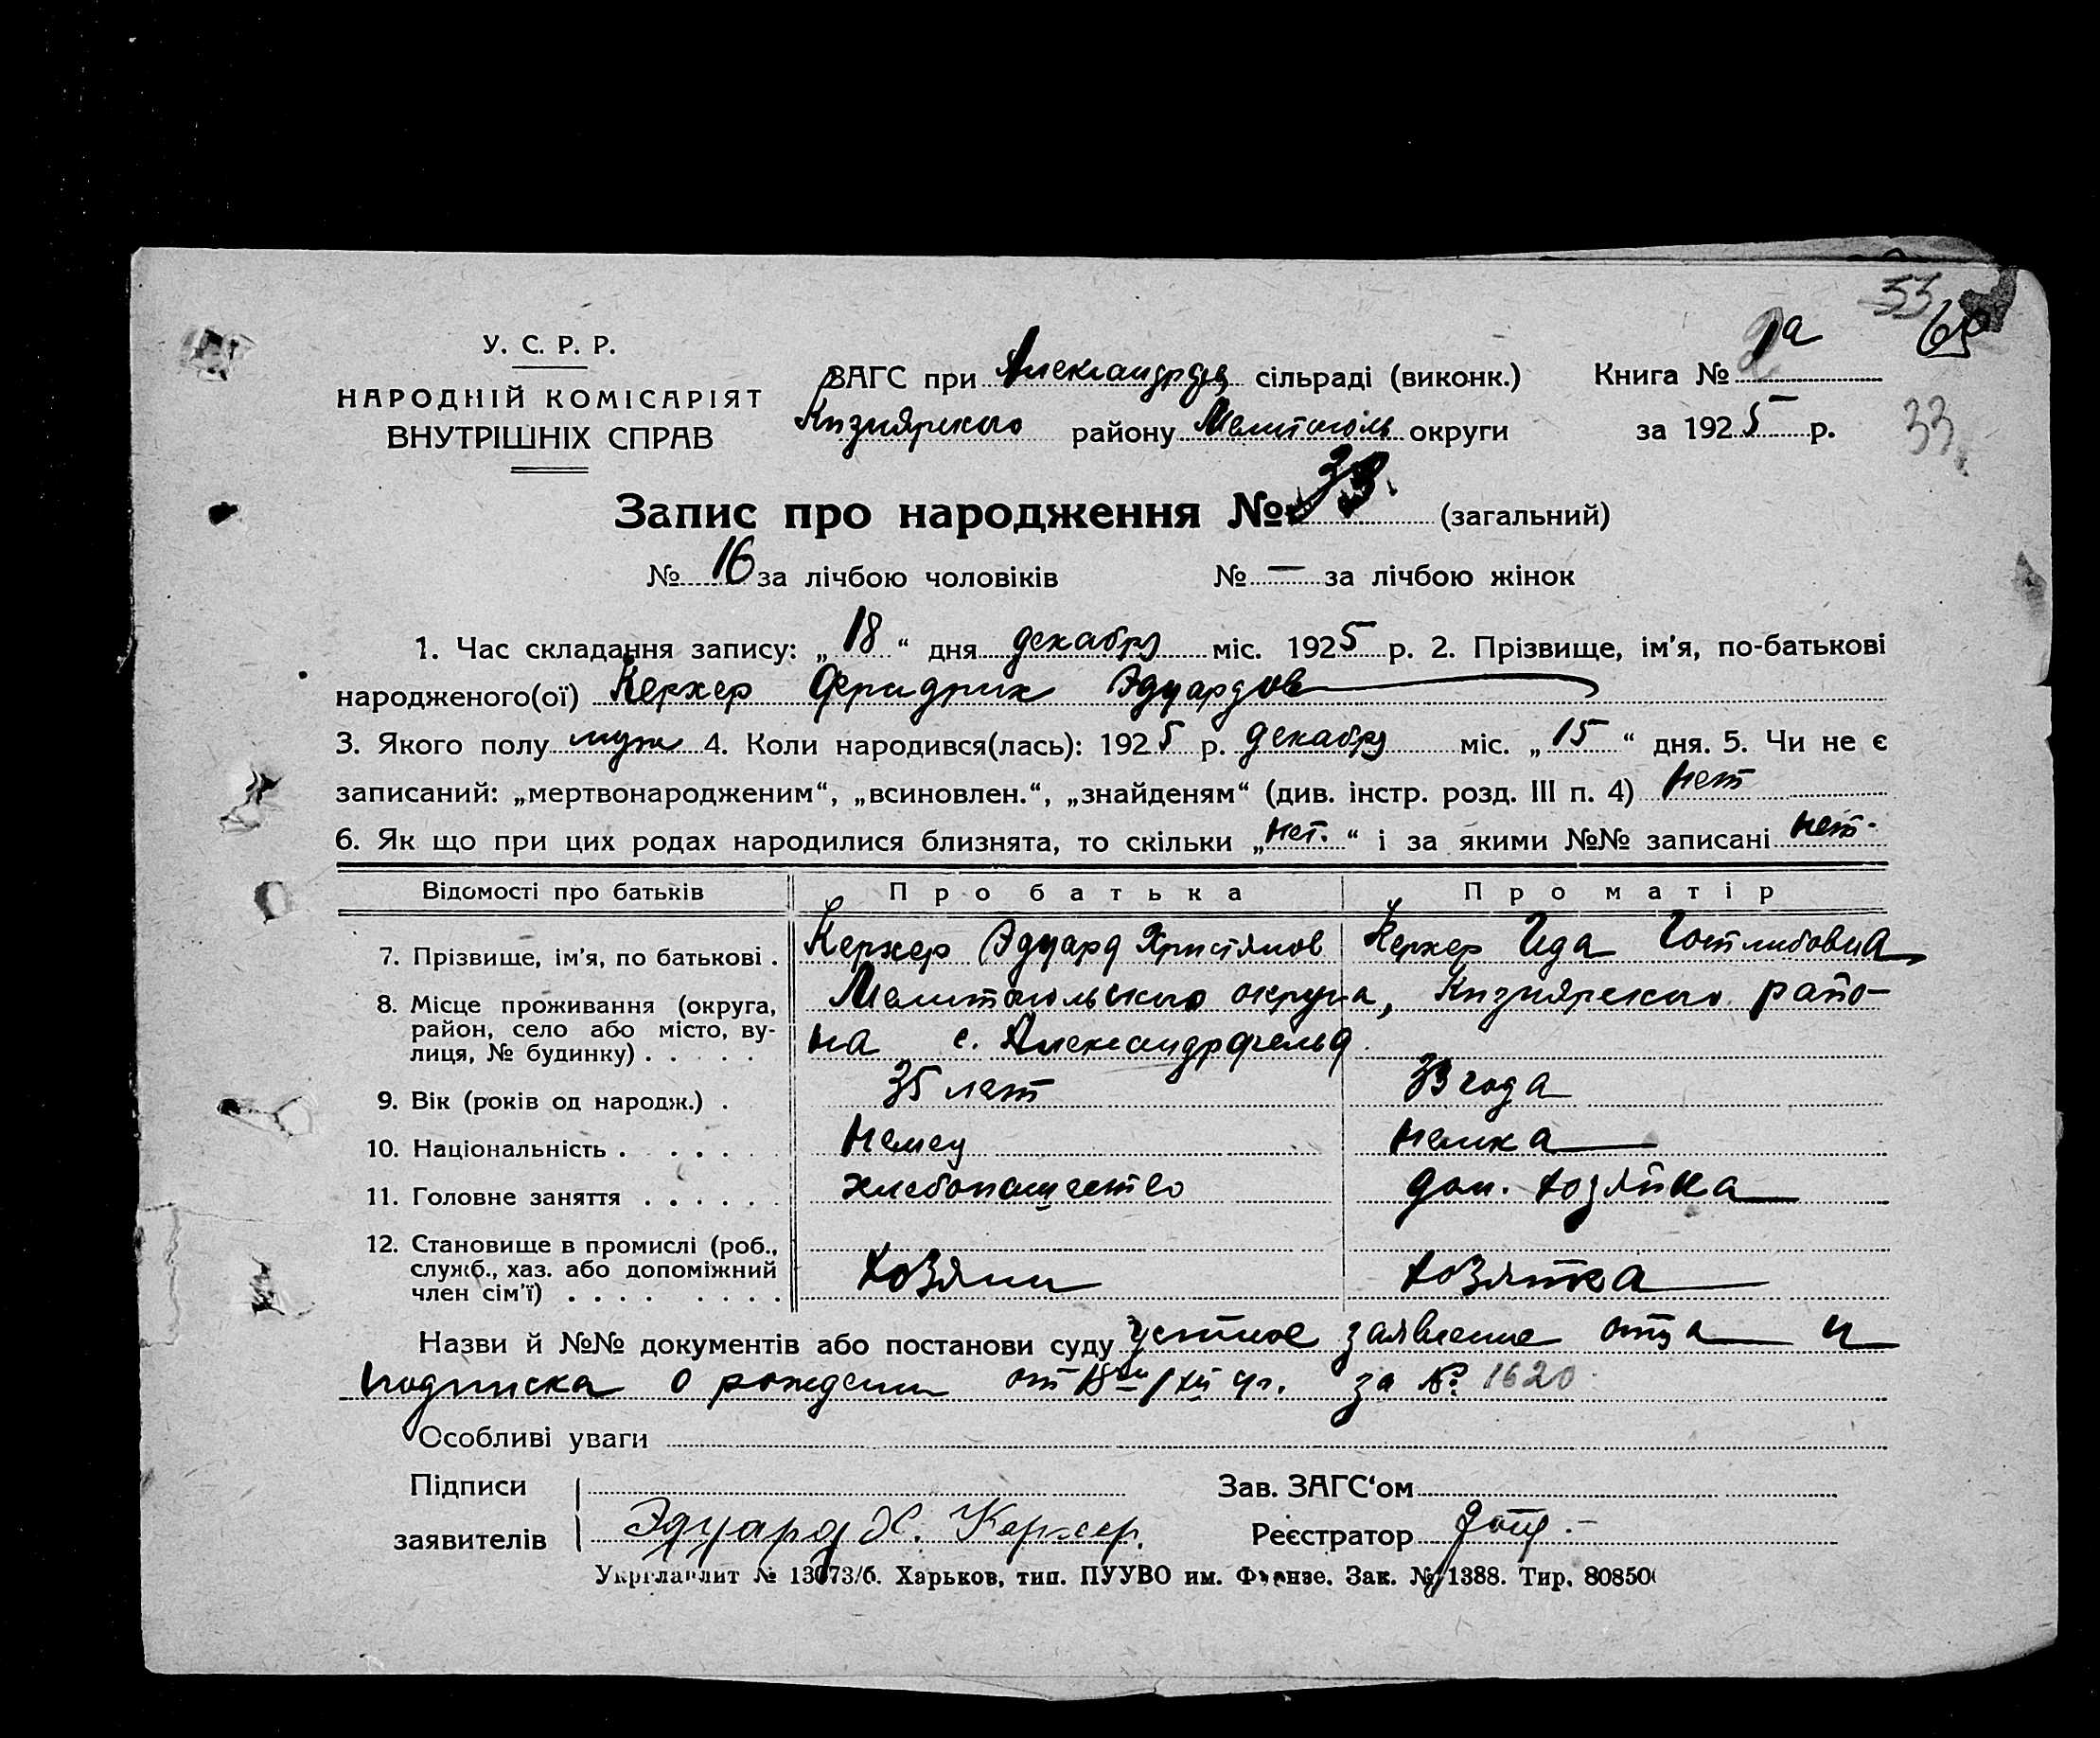 53
65
У. С. Р. Р.
НАРОДНІЙ КОМІСАРІЯТ
ВНУТРІШНІХ СПРАВ
ЗАГС при Александрф сільраді (виконк.)
Кизиярского району Мелитополь округи
Книга № 1а
за 1925 р.
33
Запис про народження № 33 (загальний)
№ 16 за лічбою чоловіків № — за лічбою жінок
1. Час складання запису: „18“ дня декабря міс. 1925 р. 2. Прізвище, ім'я, по-батькові
народженого(ої) Керхер Фридрих Эдуардов
3. Якого полу муж 4. Коли народився(лась): 1925 р. декабря міс. „15“ дня. 5. Чи не є
записаний: „мертвонародженим“, „всиновлен.“, „знайденям“ (див. інстр. розд. III п. 4) нет
6. Як що при цих родах народилися близнята, то скільки „нет.“ і за якими №№ записані нет.
Відомості про батьків Про батька Про матір
7. Прізвище, ім'я, по батькові . Керхер Эдуард Християнов Керхер Ида Готлибовна
8. Місце проживання (округа, Мелитопольского округа, Кизиярского райо-
район, село або місто, ву-
лиця, № будинку) . . . . . на с. Александрфельд.
9. Вік (років од народж.) . 35 лет 33 года
10. Національність . . . . . . Немец немка
11. Головне заняття . . . . . . хлебопашество дом. хозяйка
12. Становище в промислі (роб.,
служб., хаз. або допоміжний хозяин хозяйка
член сім'ї) . . . . . . . .
Назви й №№ документів або постанови суду устное заявление отца и
подписка о рождении от 18го/XII ч. г. за № 1620
Особливі уваги
Підписи Зав. ЗАГС‘ом
заявителів Эдуард Х. Керхер. Реєстратор
Укрглавлит № 13073/б. Харьков, тип. ПУУВО им. Фрунзе. Зак. № 1388. Тир. 80850